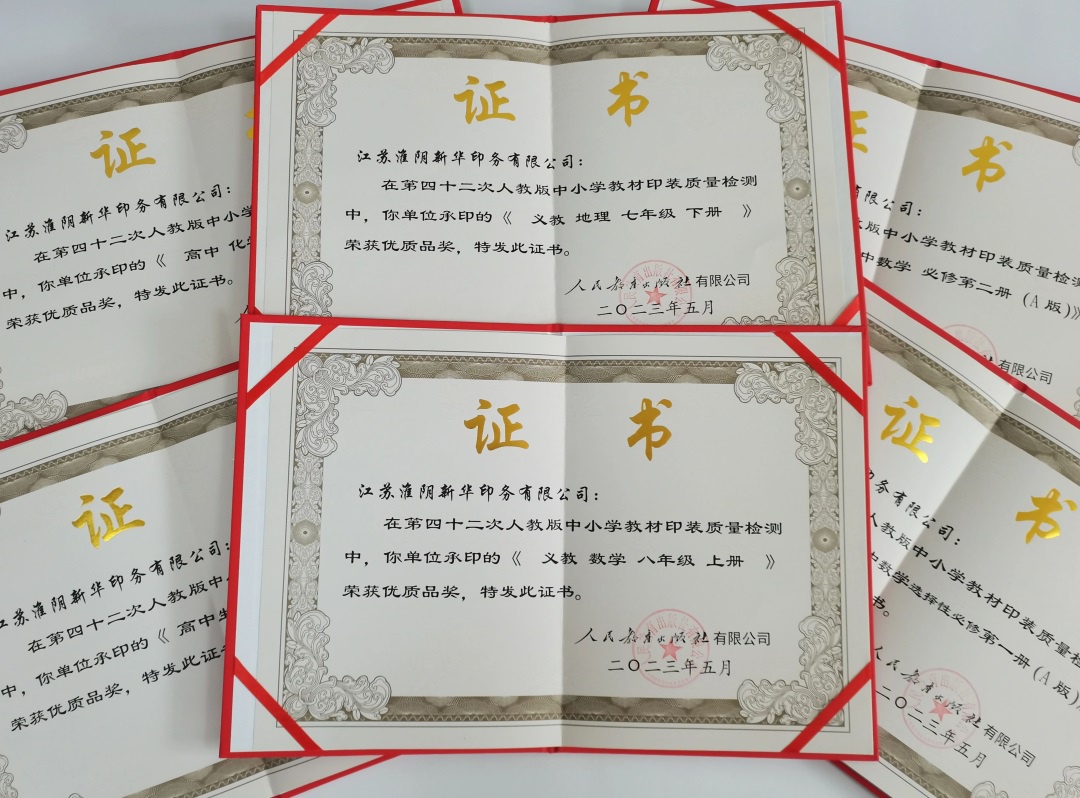 证 书
江苏淮阴新华印务有限公司：
在第四十二次人教版中小学教材印装质量检测
中，你单位承印的《 义教 地理 七年级 下册 》
荣获优质品奖，特发此证书。
人民教育出版社有限公司
二〇二三年五月
证 书
江苏淮阴新华印务有限公司：
在第四十二次人教版中小学教材印装质量检测
中，你单位承印的《 义教 数学 八年级 上册 》
荣获优质品奖，特发此证书。
人民教育出版社有限公司
二〇二三年五月
证
江苏淮阴新华印务有限公司：
在第四十二次人教版中小学
中，你单位承印的《 高中 化
荣获优质品奖，特发此证书。
证
江苏淮阴新华印务有限公司：
在第四十二次人教版中
中，你单位承印的《 高中
荣获优质品奖，特发此证书
书
有限公司：
版中小学教材印装质量检测
中数学 必修第二册（A版）》
有限公司
证 书
务有限公司：
人教版中小学教材印装质量检
中数学选择性必修第一册（A版）
书。
人民教育出版社有限公司
二〇二三年五月